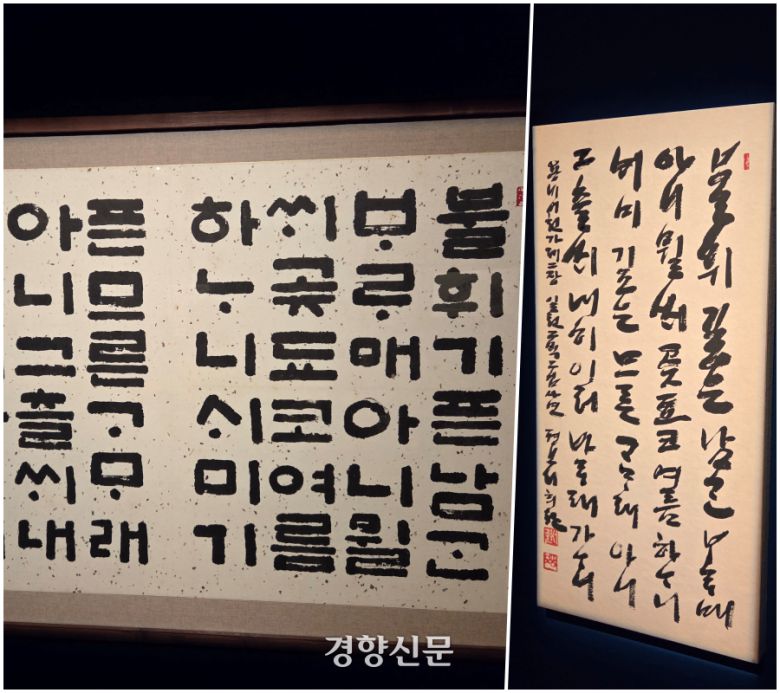 불휘기픈남ᄀᆞᆫ
ᄇᆞᄅᆞ매아니뮐
ᄊᆡ곶됴코여름
하ᄂᆞ니ᄉᆡ미기
픈므른ᄀᆞᄆᆞ래
아니그츨ᄊᆡ내
불휘 깊은 남ᄀᆞᆫ ᄇᆞᄅᆞ매
아니 뮐ᄊᆡ 곶 됴코 여름 하ᄂᆞ니
ᄉᆡ미 깊은 므른 ᄀᆞᄆᆞ래 아니
그츨ᄊᆡ 내히 이러 바ᄅᆞ래 가ᄂᆞ니
용비어천가 제二장 일천구백
경향신문